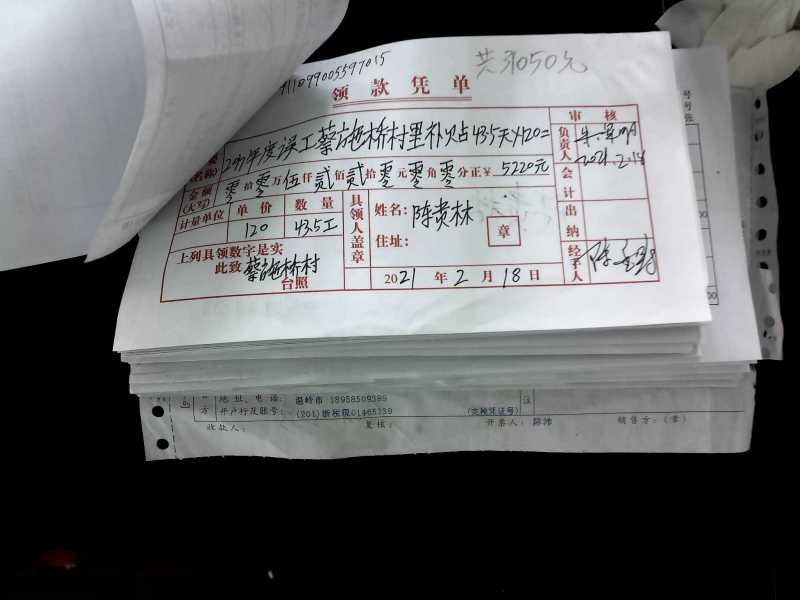 共3050元
领款凭单
2020年度误工蔡施桥村里补贴43.5天×120=
审核
负责人
2021.2.18
金额(大写)
零拾零万伍仟贰佰贰拾零元零角零分正¥5220元
会计
计量单位 单价 数量
120 43.5工
具领人盖章
姓名:陈贵林
住址:
章
出纳
上列具领数字是实
此致 蔡施桥村
台照
2021年2月18日
经手人
号号张
地址、电话: 温岭市 18958509389
开户行及账号:
收款人: 复核: 开票人: 销售方:(章)